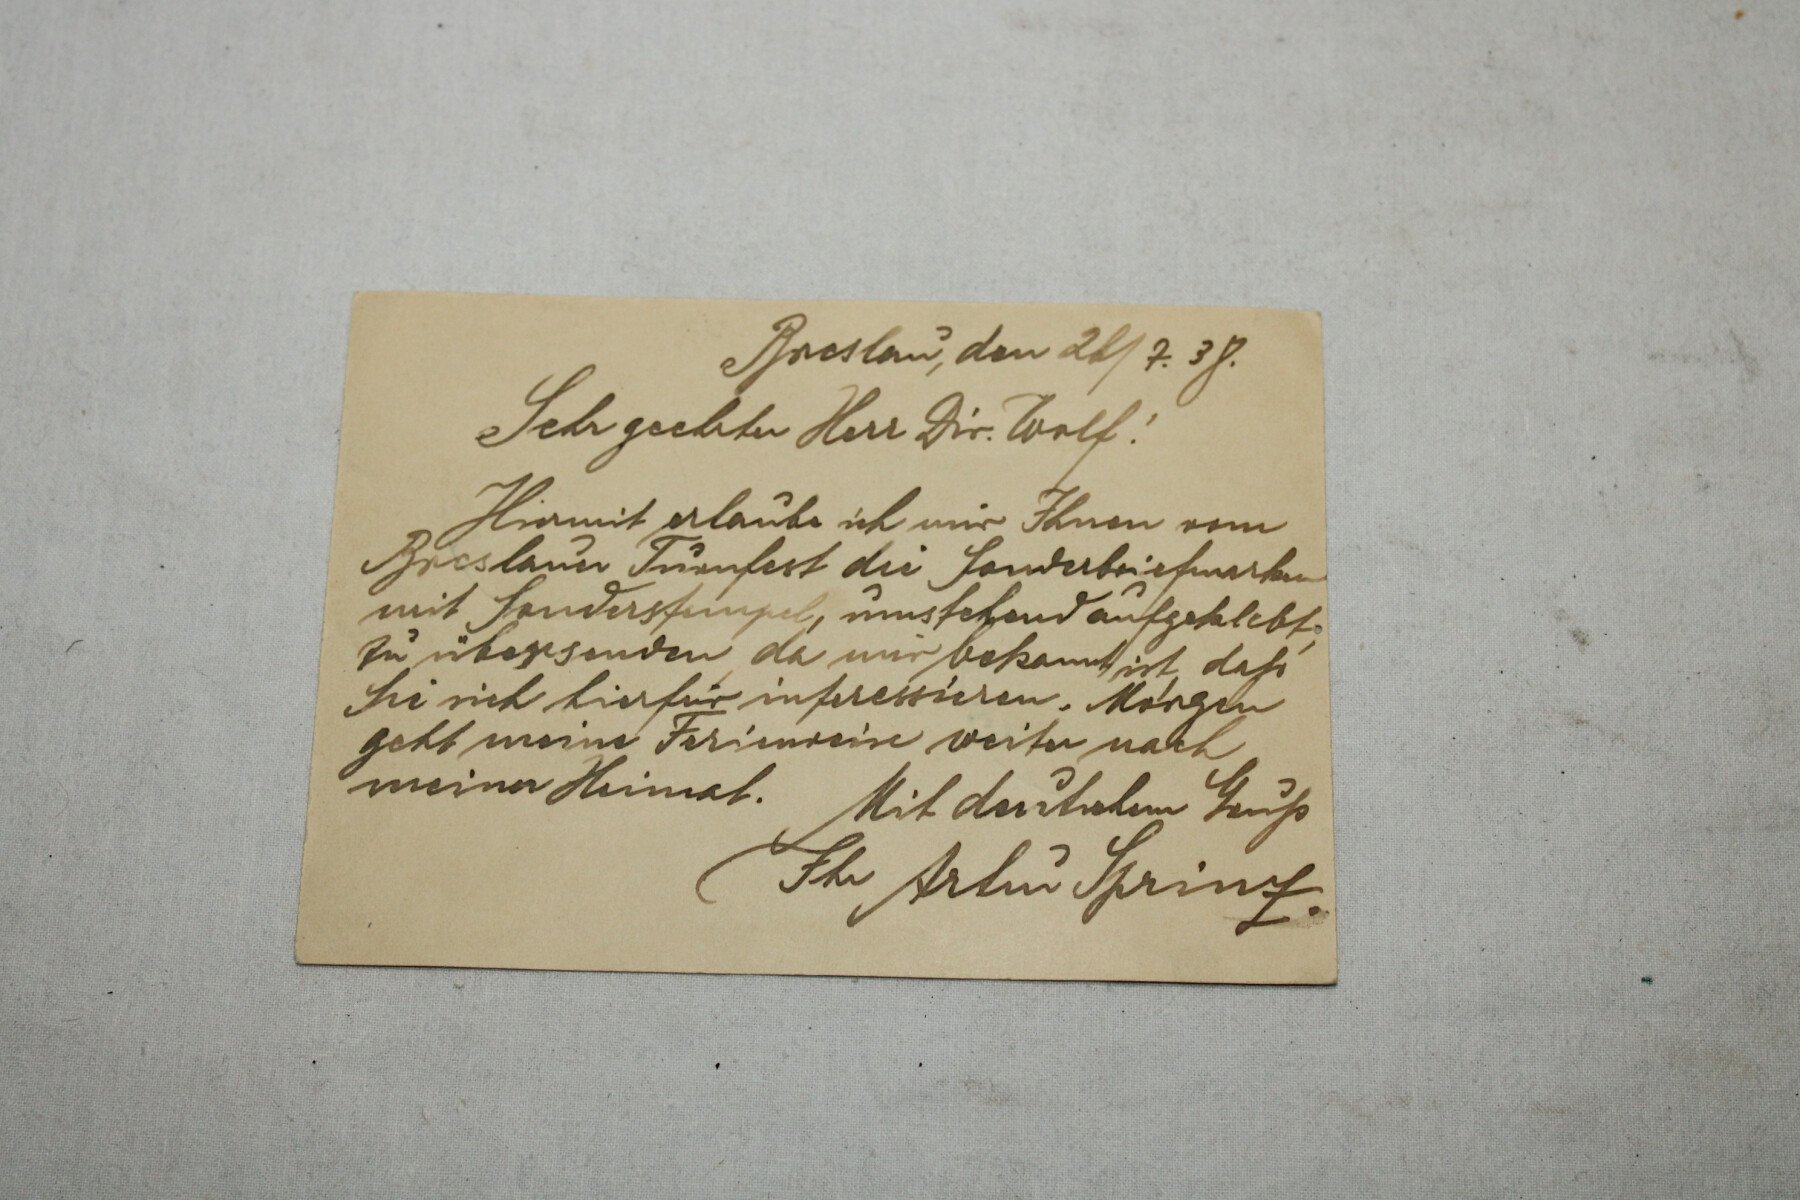 Breslau, den 26/7. 38.
Sehr geehrter Herr Dir. Wolf!
Hiermit erlaube ich mir Ihnen vom
Breslauer Turnfest die Sonderbriefmarken
mit Sonderstempel, umstehend aufgeklebt,
zu übersenden da mir bekannt ist, daß
Sie sich hierfür interessieren. Morgen
geht meine Ferienreise weiter nach
meiner Heimat.
Mit deutschem Gruß
Ihr Artur Sprinz.